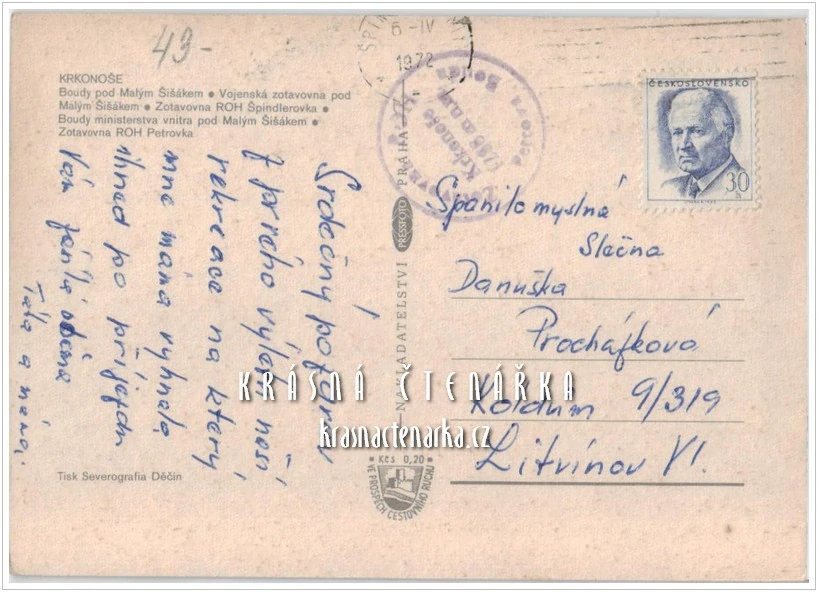 43-
KRKONOŠE
Boudy pod Malým Šišákem ● Vojenská zotavovna pod
Malým Šišákem ● Zotavovna ROH Špindlerovka ●
Boudy ministerstva vnitra pod Malým Šišákem ●
Zotavovna ROH Petrovka
Srdečný pozdrav
z prvého výletu naší
rekreace na který
mne máma vyhnala
ihned po příjezdu
Vám zasílá
Táta a máma.
Tisk Severografia Děčín
NAKLADATELSTVÍ PRESSFOTO PRAHA
Kčs 0,20
VE PROSPĚCH CESTOVNÍHO RUCHU
6-IV
1972
Krkonoše
Bouda
ČESKOSLOVENSKO
30
h
Spanilomyslná
Slečna
Danuška
Procházková
Koldům 9/319
Litvínov VI.
KRÁSNÁ ČTENÁŘKA
krasnactenarka.cz